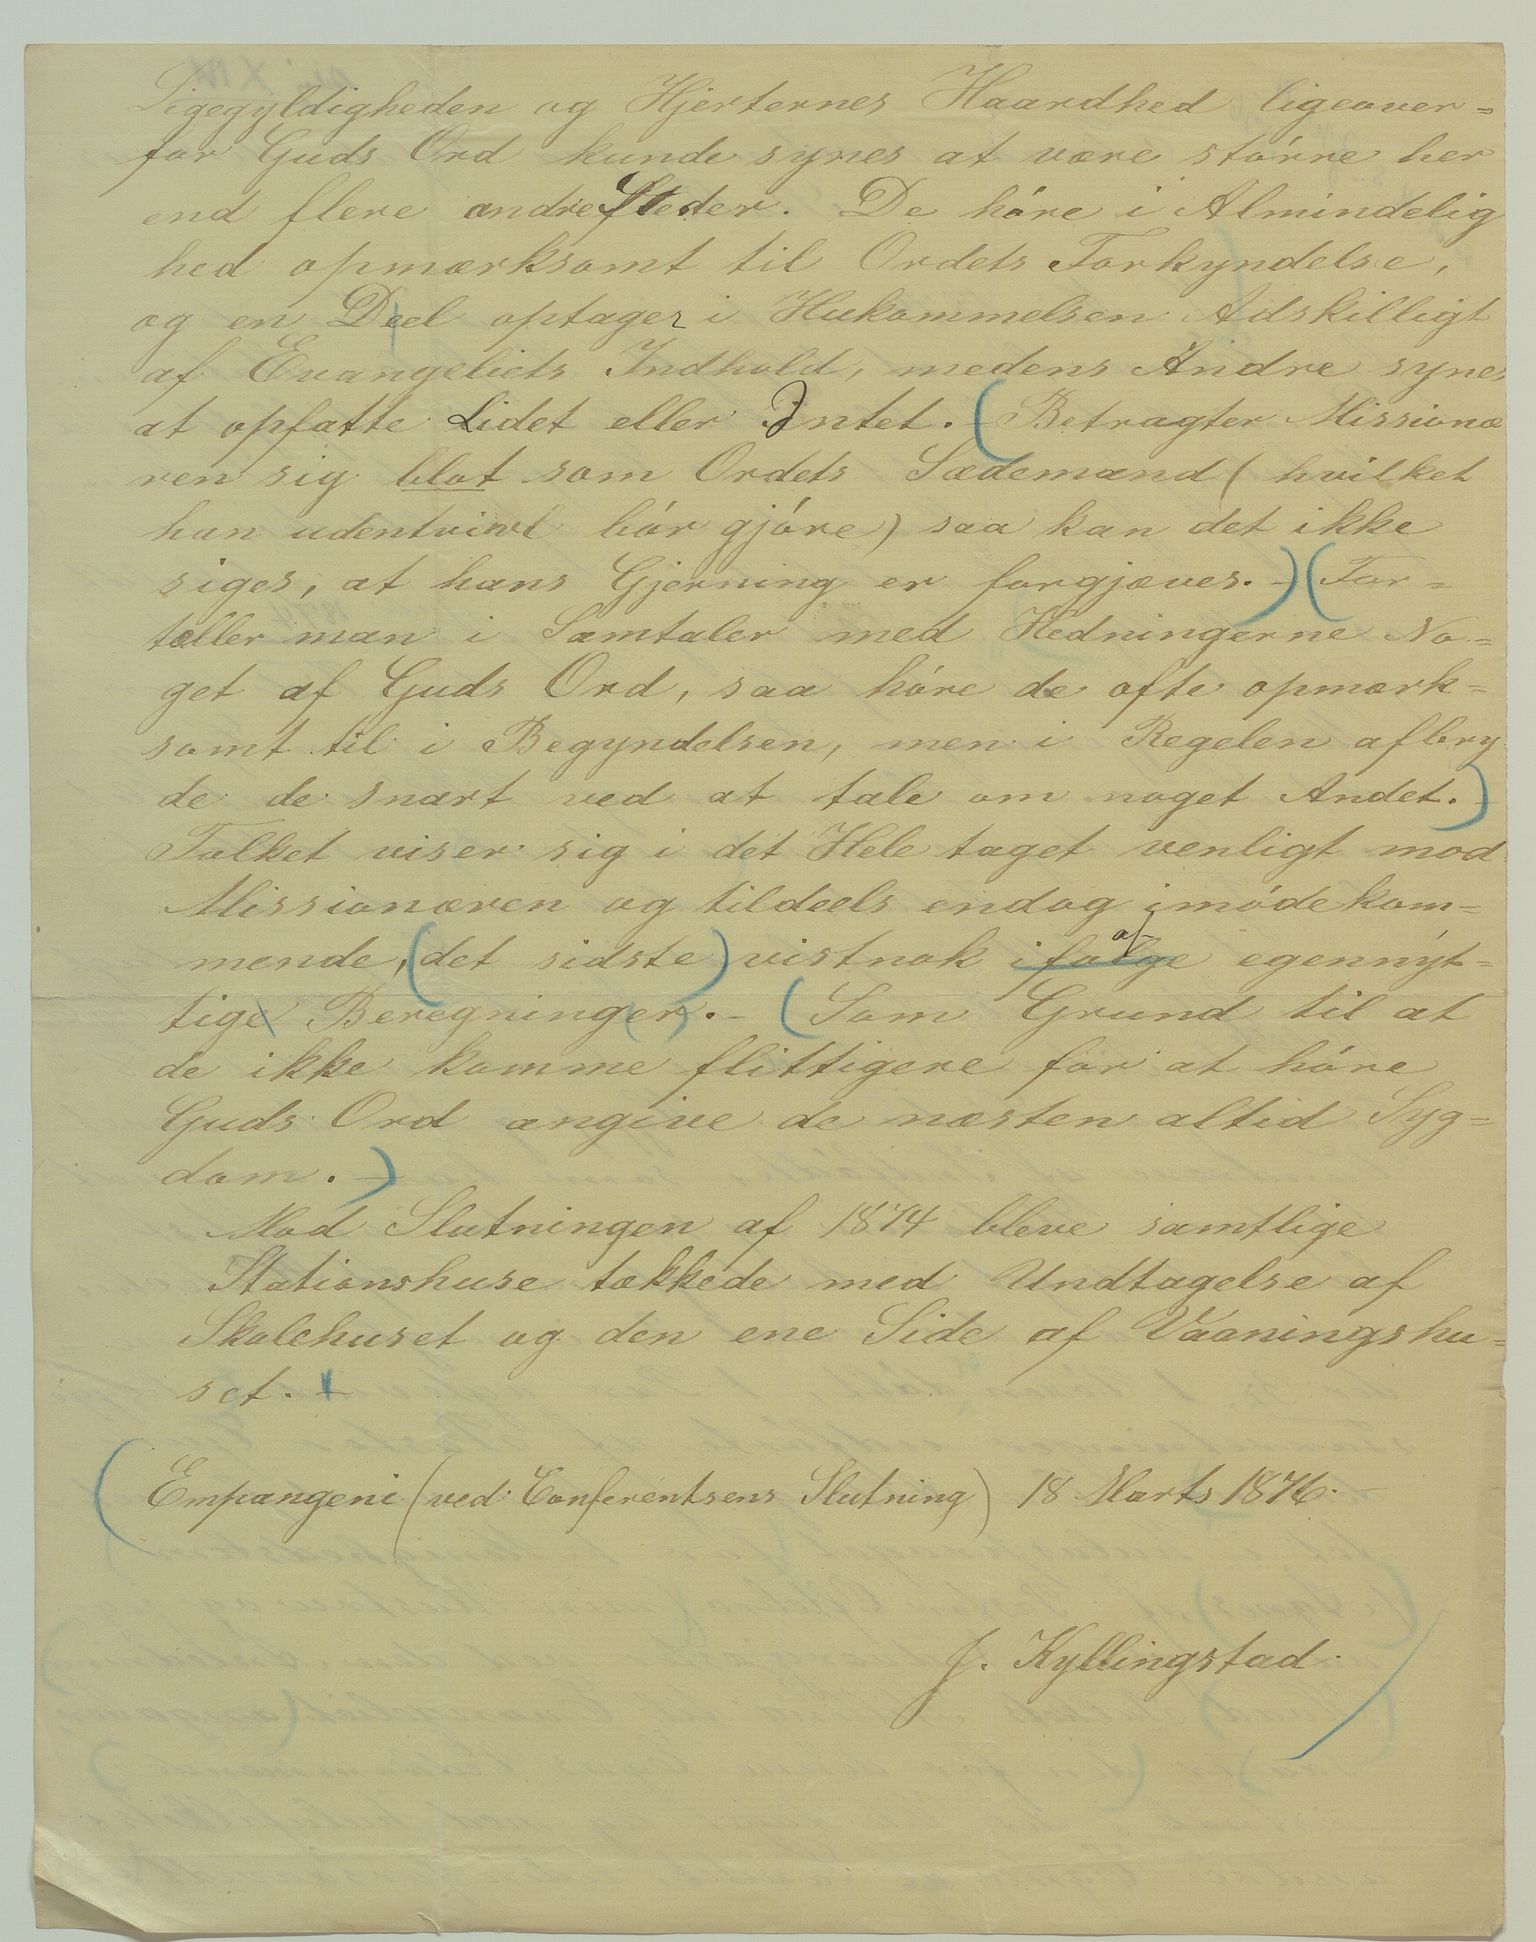 Ligegyldigheden og Hjerternes Haardhed ligeover=
for Guds Ord kunde synes at være större her
end flere andre Steder. De höre i Almindelig
hed opmærksomt til Ordets Forkyndelse,
og en Deel optager i Hukommelsen Adskilligt
af Evangeliets Indhold, medens Andre synes
at opfatte Lidet eller Intet. (Betragter Missionæ
ren sig blot som Ordets Sædemand (hvilket
han udentvivl bör gjöre) saa kan det ikke
siges, at hans Gjerning er forgjæves. -) (For=
tæller man i Samtaler med Hedningerne No=
get af Guds Ord, saa höre de ofte opmærk=
somt til i Begyndelsen, men i Regelen afbry
de de snart ved at tale om noget Andet.) -
Folket viser sig i det Hele taget venligt mod
Missionæren og tildeels endog imödekom=
mende, (det sidste) vistnok ifölge af egennyt=
tige Beregninger. - (Som Grund til at
de ikke komme flittigere for at höre
Guds Ord angive de næsten altid Syg=
dom. -)
Mod Slutningen af 1874 bleve samtlige
Stationshuse tækkede med Undtagelse af
Skolehuset og den ene Side af Vaaningshu=
set. -
(Empangeni (ved Conferentsens Slutning) 18 Marts 1876. -
J. Kyllingstad.)